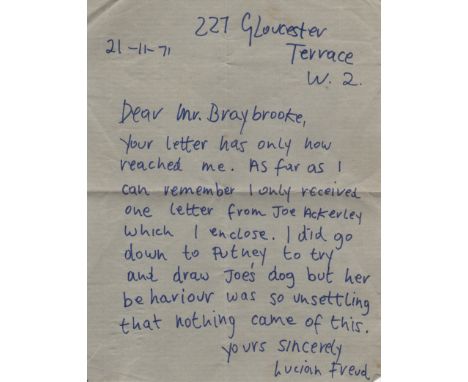 227 Gloucester
21-11-71
Terrace
W. 2.
Dear Mr. Braybrooke,
Your letter has only now
reached me. As far as I
can remember I only received
one letter from Joe Ackerley
which I enclose. I did go
down to Putney to try
and draw Joe's dog but her
behaviour was so unsettling
that nothing came of this.
yours sincerely
Lucian Freud